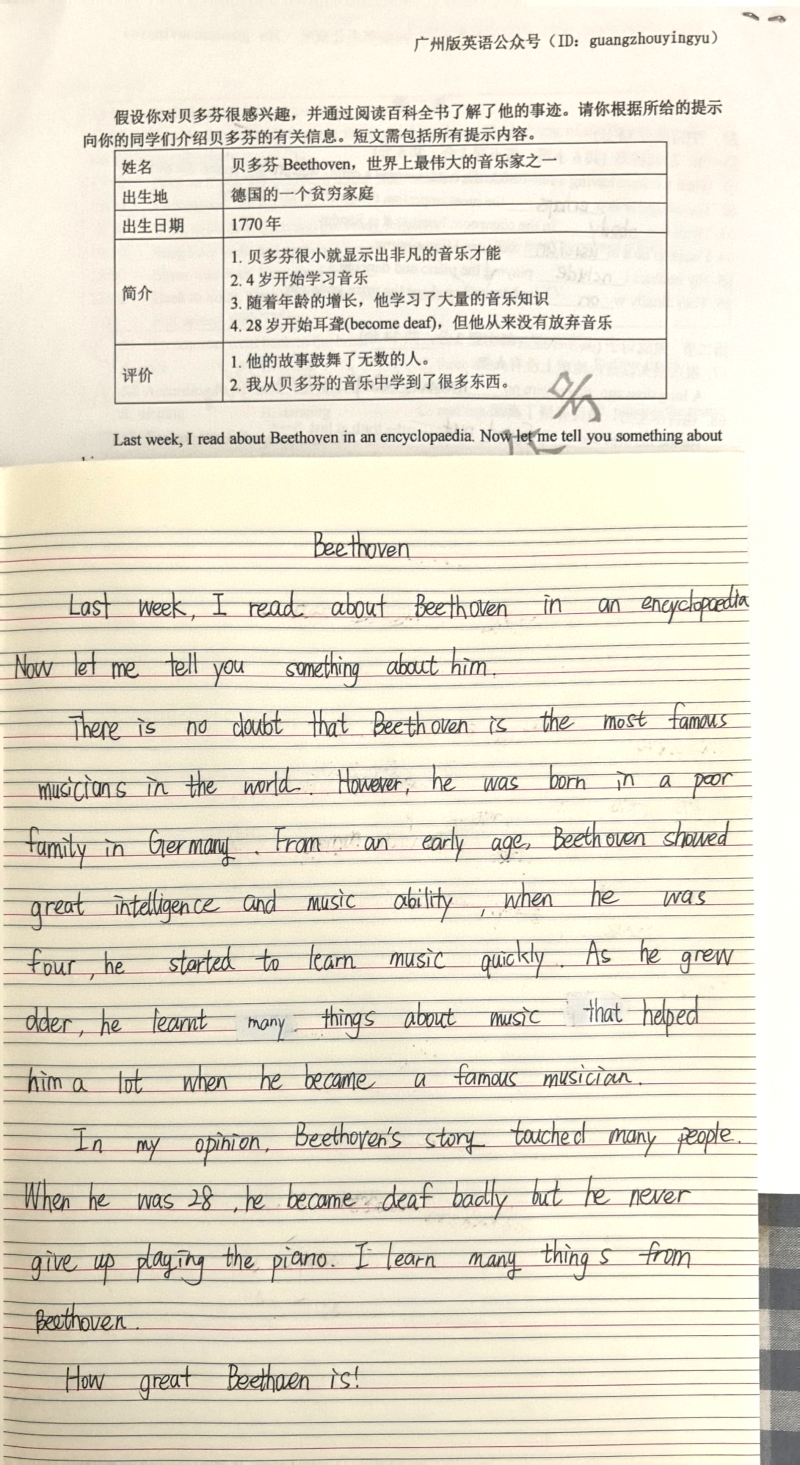 广州版英语公众号（ID：guangzhouyingyu）
假设你对贝多芬很感兴趣，并通过阅读百科全书了解了他的事迹。请你根据所给的提示
向你的同学们介绍贝多芬的有关信息。短文需包括所有提示内容。
姓名 贝多芬 Beethoven，世界上最伟大的音乐家之一
出生地 德国的一个贫穷家庭
出生日期 1770 年
简介
1. 贝多芬很小就显示出非凡的音乐才能
2. 4 岁开始学习音乐
3. 随着年龄的增长，他学习了大量的音乐知识
4. 28 岁开始耳聋(become deaf)，但他从来没有放弃音乐
评价
1. 他的故事鼓舞了无数的人。
2. 我从贝多芬的音乐中学到了很多东西。
号
Last week, I read about Beethoven in an encyclopaedia. Now let me tell you something about
Beethoven
Last week, I read about Beethoven in an encyclopaedia
Now let me tell you something about him.
There is no doubt that Beethoven is the most famous
musicians in the world. However, he was born in a poor
family in Germany. From an early age, Beethoven showed
great intelligence and music ability, when he was
four, he started to learn music quickly. As he grew
older, he learnt many things about music that helped
him a lot when he became a famous musician.
In my opinion, Beethoven's story touched many people.
When he was 28, he became deaf badly but he never
give up playing the piano. I learn many things from
Beethoven.
How great Beethoen is!